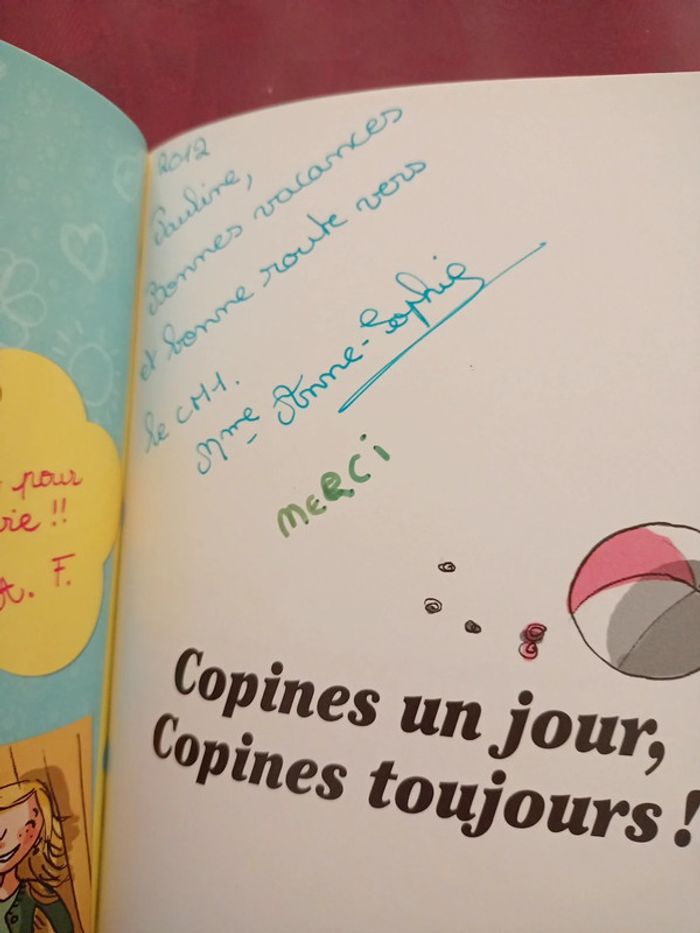 pour
vie !!
A. F.
2012
Pauline,
Bonnes vacances
et bonne route vers
le CM1.
Mme Anne-Sophie
MERCi
Copines un jour,
Copines toujours !